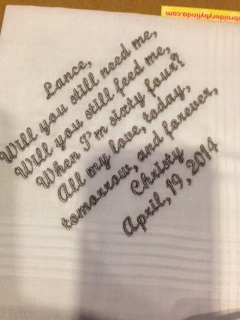 broiderybylinda.com
Lance,
Will you still need me,
Will you still feed me,
When I'm sixty four?
All my love, today,
tomorrow, and forever,
Christy
April, 19, 2014